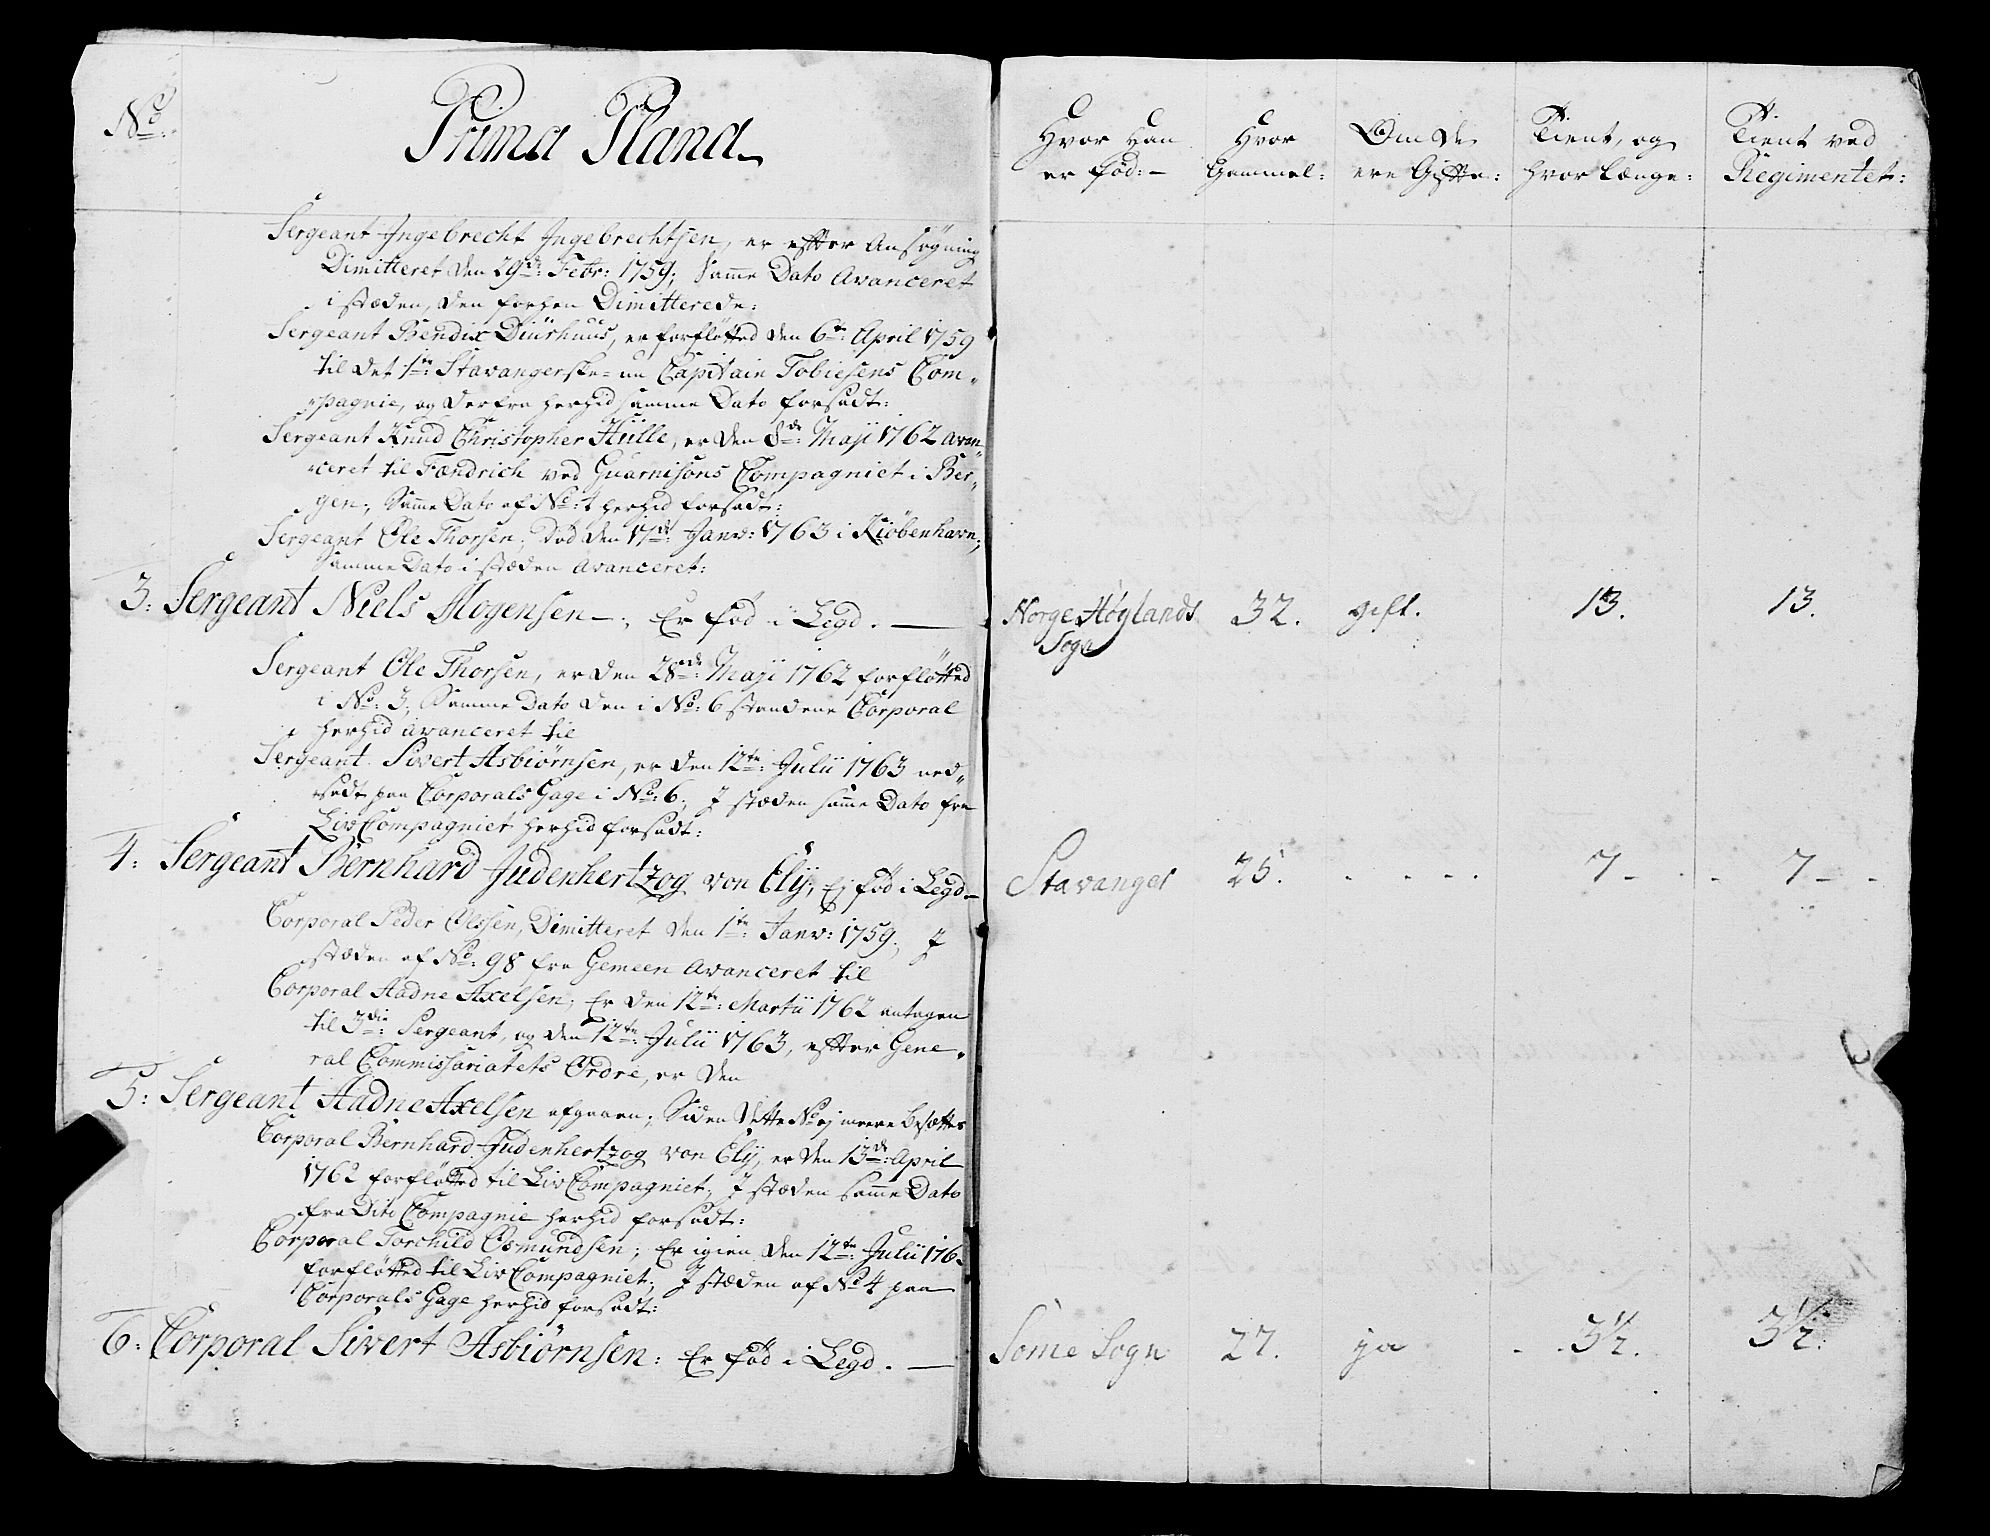 No
Prima Plana
Sergeant Ingebrecht Ingebrechtsen, er efter Ansøgning
Dimitteret den 29de: Febr: 1759; Samme Dato Avanceret
i stæden, den forhen Dimitterede:
Sergeant Bendix Diürhuus, er forfløtted den 6te: April 1759
til det 1te: Stavangerske Capitain Tobiesens Com„
„pagnie, og derfra herhid samme Dato forsadt:
Sergeant Knud Christopher Hülle, er den 8de: Maji 1762 avan„
„ceret til Fændrich ved Guarnisons Compagniet i Ber„
„gen; Samme Dato af No: 4 herhid forsadt:
Sergeant Ole Thorsen; død den 17de: Janv: 1763 i Kiøbenhavn;
Samme Dato i stæden avanceret:
3: Sergeant Niels Mogensen —; Er fød i Legd. —
Sergeant Ole Thorsen, er den 28de: Maji 1762 forfløtted
i No: 3; Samme Dato den i No: 6 staaende Corporal
herhid avanceret til
Sergeant Sivert Asbiørnsen, er den 12te: Julii 1763 ned„
„sadt paa Corporals Gage i No: 6; I stæden samme Dato fra
Liv Compagniet herhid forsadt:
4: Sergeant Bernhard Judenhertzog von Ely; Ej fød i Legd —
Corporal Peder Olssen, Dimitteret den 1te: Janv: 1759; I
stæden af No: 98 fra Gemeen Avanceret til
Corporal Aadne Axelsen; Er den 12te: Martii 1762 antagen
til 3die: Sergeant, og den 12te: Julii 1763, efter Gene„
ral Commissariatets Ordre, er den
5: Sergeant Aadne Axelsen afgaaen; Siden dette No ej meere besættes
Corporal Bernhard Judenhertzog von Ely, er den 13de: April
1762 forfløtted til Liv Compagniet; I stæden samme Dato
fra Dito Compagnie herhid forsadt:
Corporal Torchild Osmundsen; Er igien den 12te: Julii 176
forfløtted til Liv Compagniet; I stæden af No 4 paa
Corporals Gage herhid forsadt:
6: Corporal Sivert Asbiørnsen: Er fød i Legd. —
Hvor Han er fød: —
Hvor Gammel:
Om de ere Gifte:
Tient, og hvor længe:
Tient ved Regimentet:
Norge Høylands 32. gift. 13. 13.
Sogn
Stavanger 25. . . . . 7 — . . 7 — —
Some Sogn 27. ja . . 3 1/2. 3 1/2: